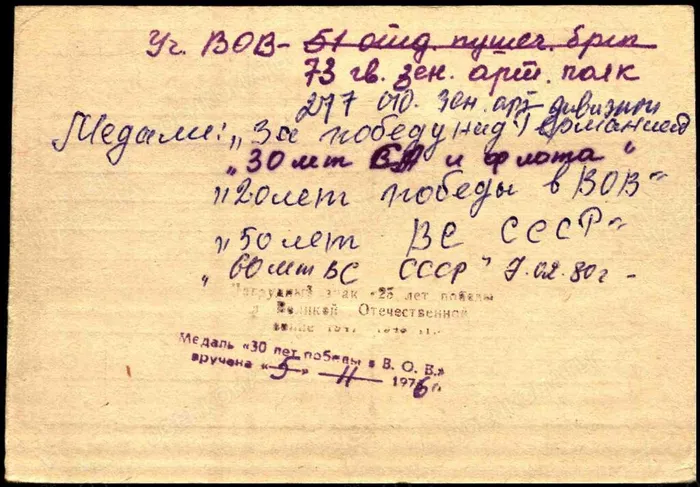 Уч. ВОВ- 51 отд. пушеч. бриг
73 гв. зен. арт. полк
277 отд. зен. арт. дивизион
Медали: "За победу над Германией"
"30 лет СА и флота"
"20 лет победы в ВОВ"
"50 лет ВС СССР"
"60 лет ВС СССР" 7.02.80г-
Нагрудный знак «25 лет победы
в Великой Отечественной
войне
Медаль «30 лет победы в В. О. В.»
вручена «5» 11 1976 г.